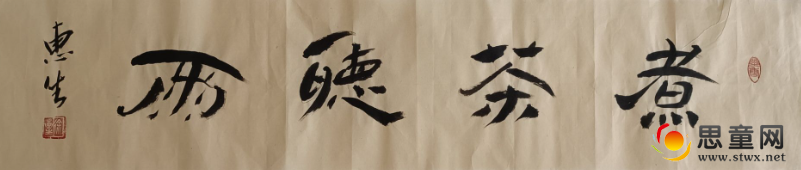 煮茶聽雨
惠生
思童网
www.stwx.net